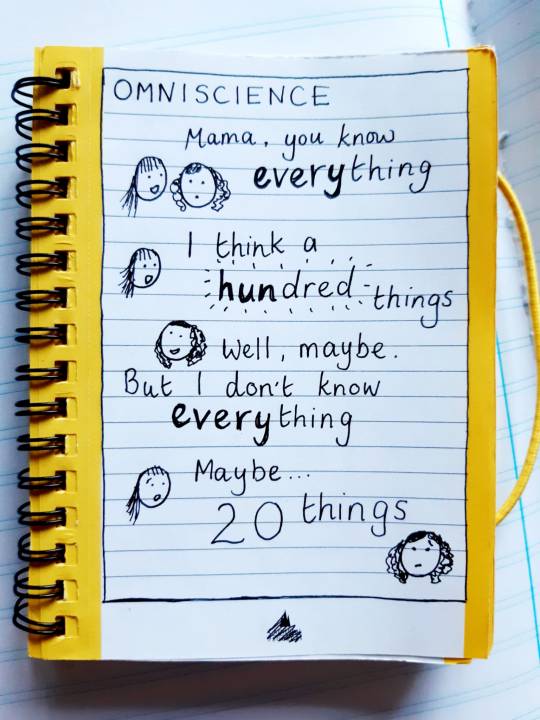 OMNISCIENCE
Mama, you know
everything
I think a
hundred things
Well, maybe.
But I don't know
everything
Maybe...
20 things